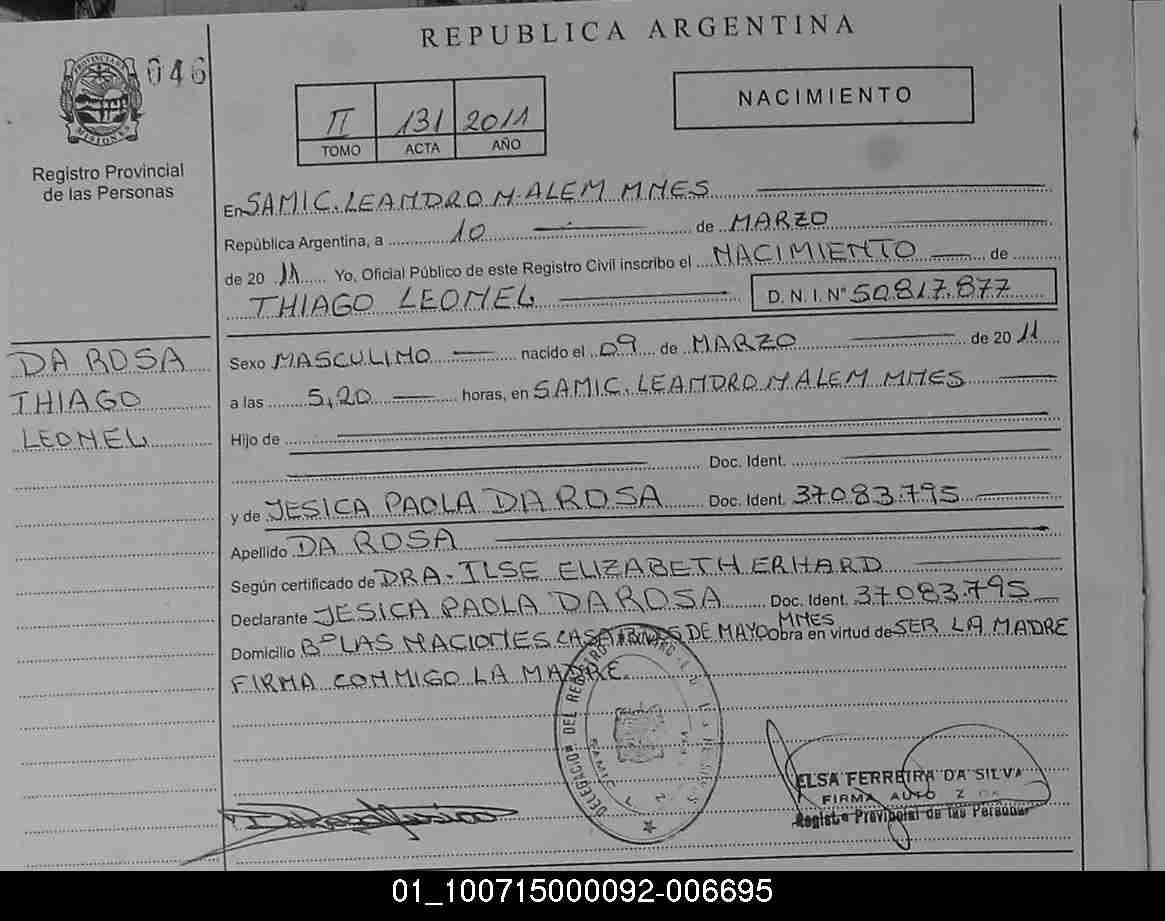 REPUBLICA ARGENTINA
PROVINCIA DE MISIONES
046
Registro Provincial
de las Personas
II 131 2011
TOMO ACTA AÑO
NACIMIENTO
En SAMIC. LEANDRO N. ALEM MNES
República Argentina, a 10 de MARZO
de 2011 Yo, Oficial Público de este Registro Civil inscribo el NACIMIENTO de
THIAGO LEONEL D. N. I. Nº 50.817.877
DA ROSA
THIAGO
LEONEL
Sexo MASCULINO nacido el 09 de MARZO de 2011
a las 5,20 horas, en SAMIC. LEANDRO N ALEM MNES
Hijo de
Doc. Ident.
y de JESICA PAOLA DA ROSA Doc. Ident. 37.083.795
Apellido DA ROSA
Según certificado de DRA. ILSE ELIZABETH ERHARD
Declarante JESICA PAOLA DA ROSA Doc. Ident. 37.083.795
Domicilio Bº LAS NACIONES CASA DE MAYO MNES obra en virtud de SER LA MADRE
FIRMA CONMIGO LA MADRE.
DELEGACION DEL REGISTRO
ELSA FERREIRA DA SILVA
FIRMA
Registro Provincial de las Personas
01_100715000092-006695